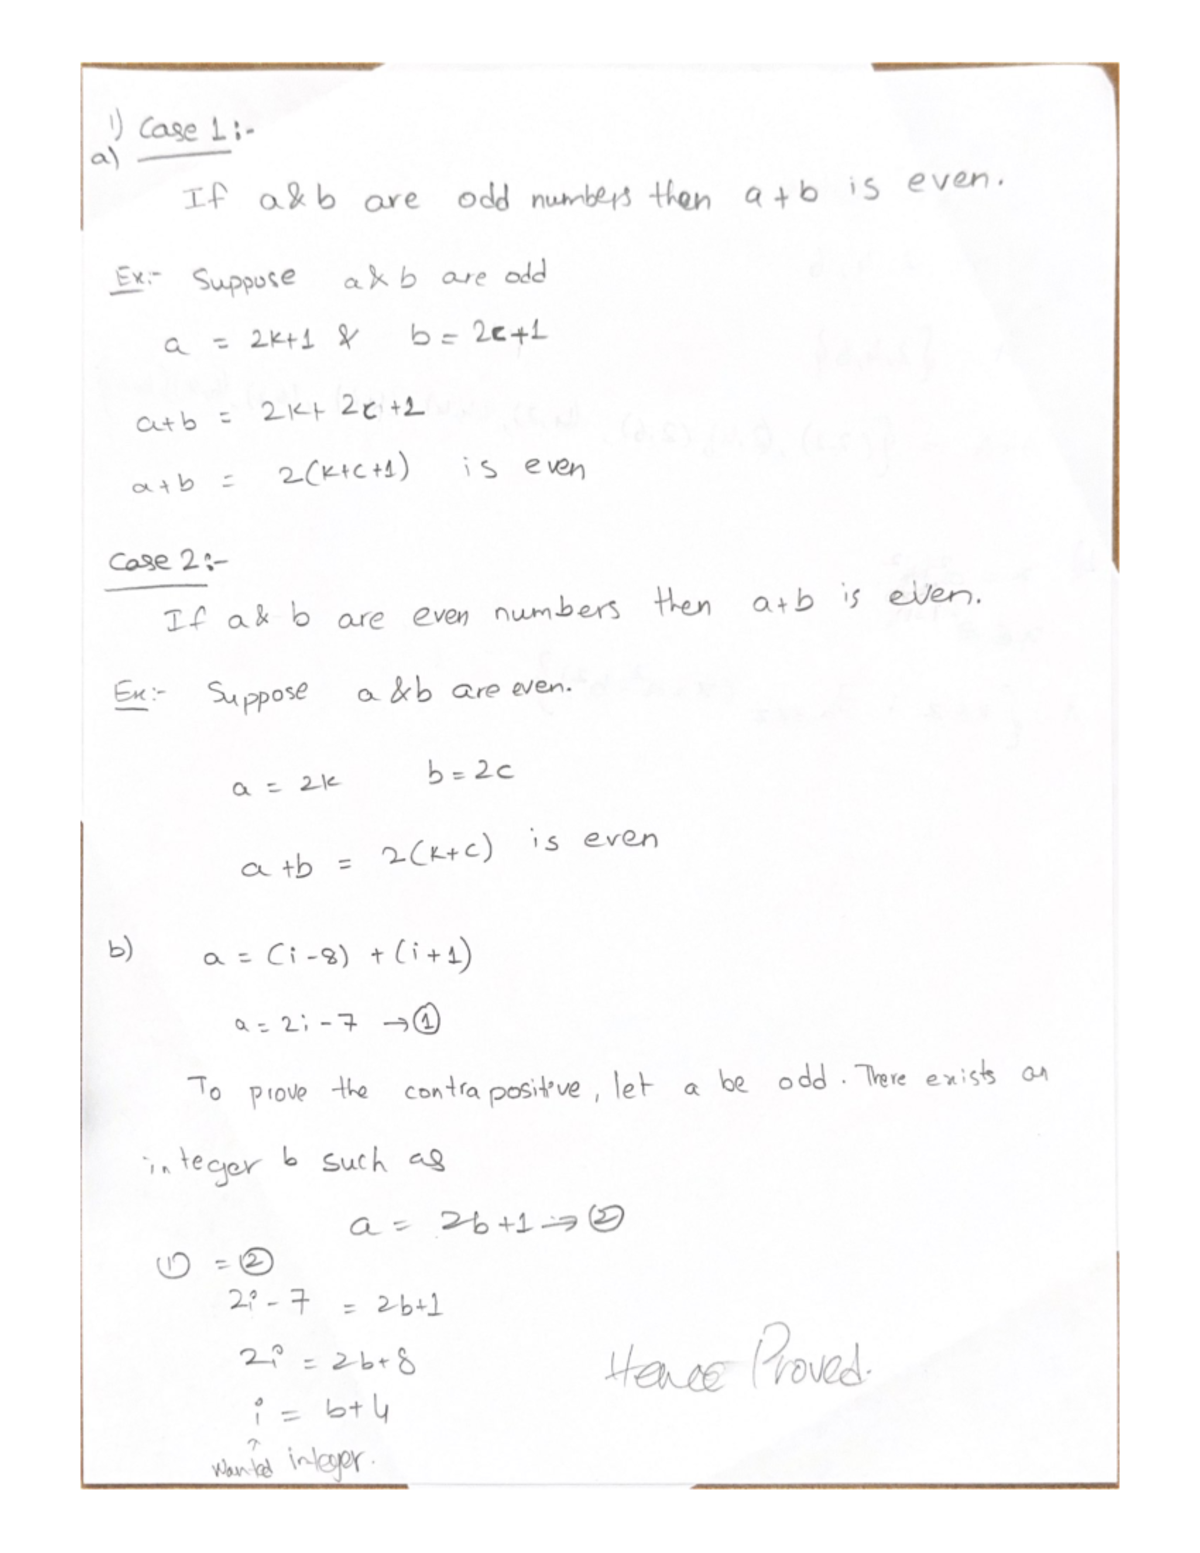 1) Case 1:-
a)
If a & b are odd numbers then a+b is even.
Ex:- Suppose a & b are odd
a = 2k+1 & b = 2c+1
a+b = 2k+ 2c+2
a+b = 2(k+c+1) is even
Case 2:-
If a & b are even numbers then a+b is even.
Ex:- Suppose a & b are even.
a = 2k b = 2c
a +b = 2(k+c) is even
b) a = (i-8) + (i+1)
a = 2i - 7 → ①
To prove the contrapositive, let a be odd. There exists an
integer b such as
a = 2b+1 → ②
① = ②
2i - 7 = 2b+1
2i = 2b+8
i = b+4
↑
Wanted integer.
Hence Proved.